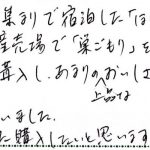 集まりで宿泊した「ほ
売場で「巣ごもり」を
購入し、あまりのおいしさ
上品な
いました。
た購入したいと思います